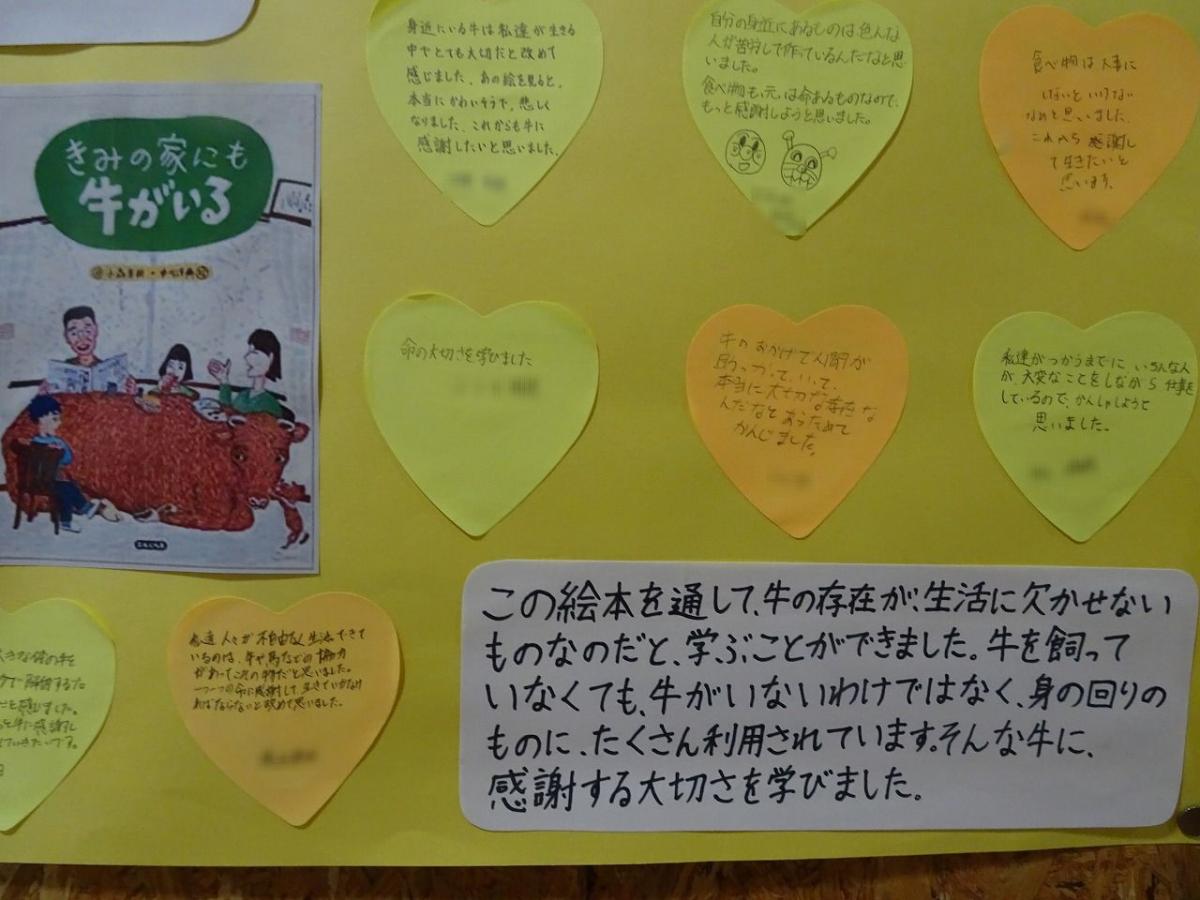 きみの家にも
牛がいる
身近にいる牛は私達が生きる
中でとても大切だと改めて
感じました。あの絵を見ると、
本当にかわいそうで、悲しく
なりました。これからも牛に
感謝したいと思いました。
自分の身近にあるものは色んな
人が苦労して作っているんだなと思
いました。
食べ物も、元は命あるものなので、
もっと感謝しようと思いました。
食べ物は大事に
しないといけない
なあと思いました。
これから感謝し
て生きたいと
思います。
命の大切さを学びました
牛のおかげで人間が
助かっていて、
本当に大切な存在な
んだなとあらためて
かんじました。
私達がつかうまでに いろんな人
が、大変なことをしながら 仕事を
しているので、かんしゃしようと
思いました。
大きな体の牛を
で解体するた
と感じました。
と牛に感謝し
ていきたいです。
私達 人々が 不自由なく生活できて
いるのは、牛や馬などの協力
があってこその物だと思いました。
一つ一つの命に感謝して生きていかなけ
ればならないと改めて思いました。
この絵本を通して、牛の存在が、生活に欠かせない
ものなのだと、学ぶことができました。牛を飼って
いなくても、牛がいないわけではなく、身の回りの
ものに、たくさん利用されています。そんな牛に、
感謝する大切さを学びました。